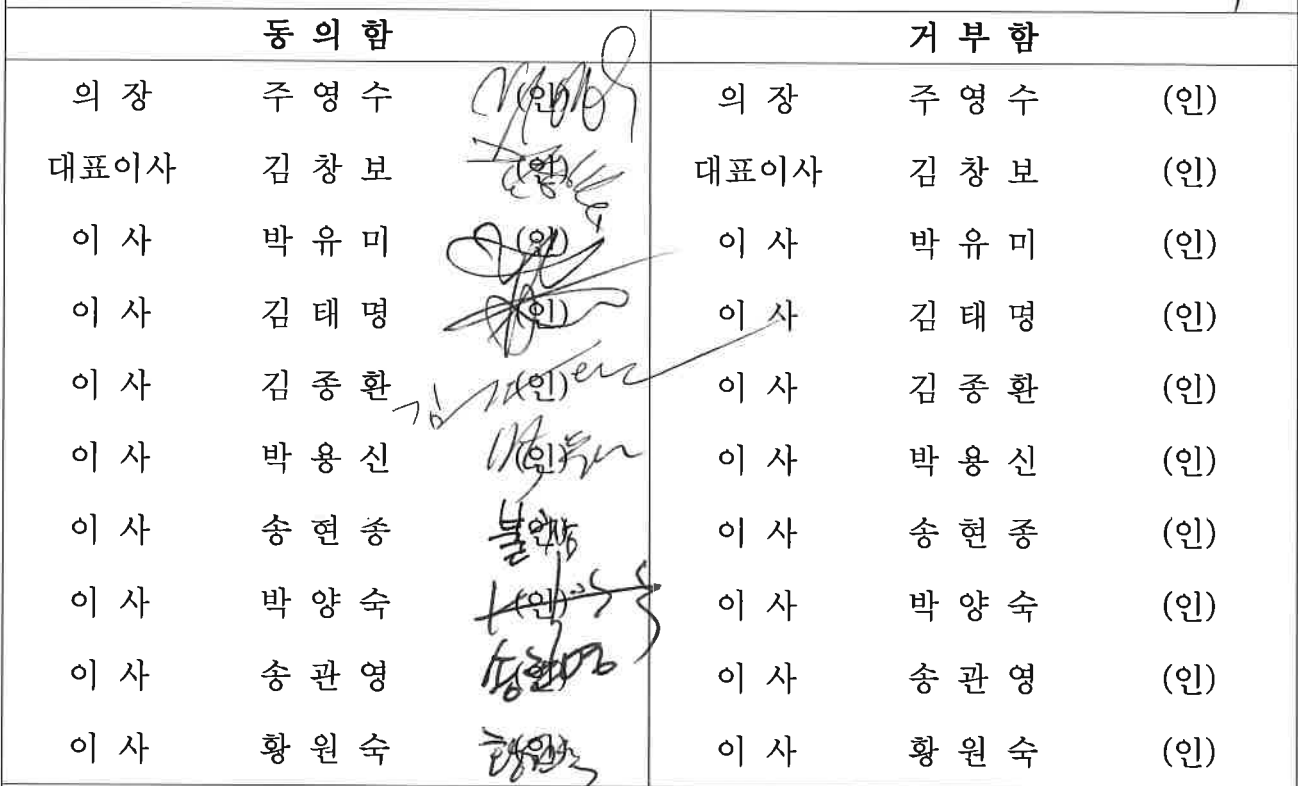 동 의 함 거 부 함
의 장 주 영 수 (인) 의 장 주 영 수 (인)
대표이사 김 창 보 (인) 대표이사 김 창 보 (인)
이 사 박 유 미 (인) 이 사 박 유 미 (인)
이 사 김 태 명 (인) 이 사 김 태 명 (인)
이 사 김 종 환 (인) 이 사 김 종 환 (인)
이 사 박 용 신 (인) 이 사 박 용 신 (인)
이 사 송 현 종 불참 이 사 송 현 종 (인)
이 사 박 양 숙 (인) 이 사 박 양 숙 (인)
이 사 송 관 영 (인) 이 사 송 관 영 (인)
이 사 황 원 숙 (인) 이 사 황 원 숙 (인)